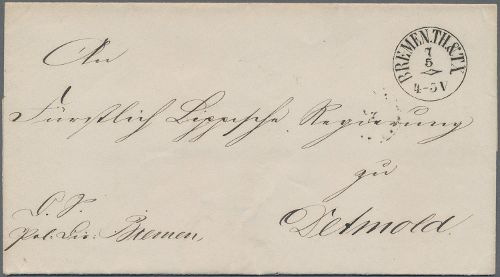 An
BREMEN.TH&TX
7
5
4-5V
Fürstlich Lippische Regierung
zu
Detmold.
Pol: Dir: Bremen,